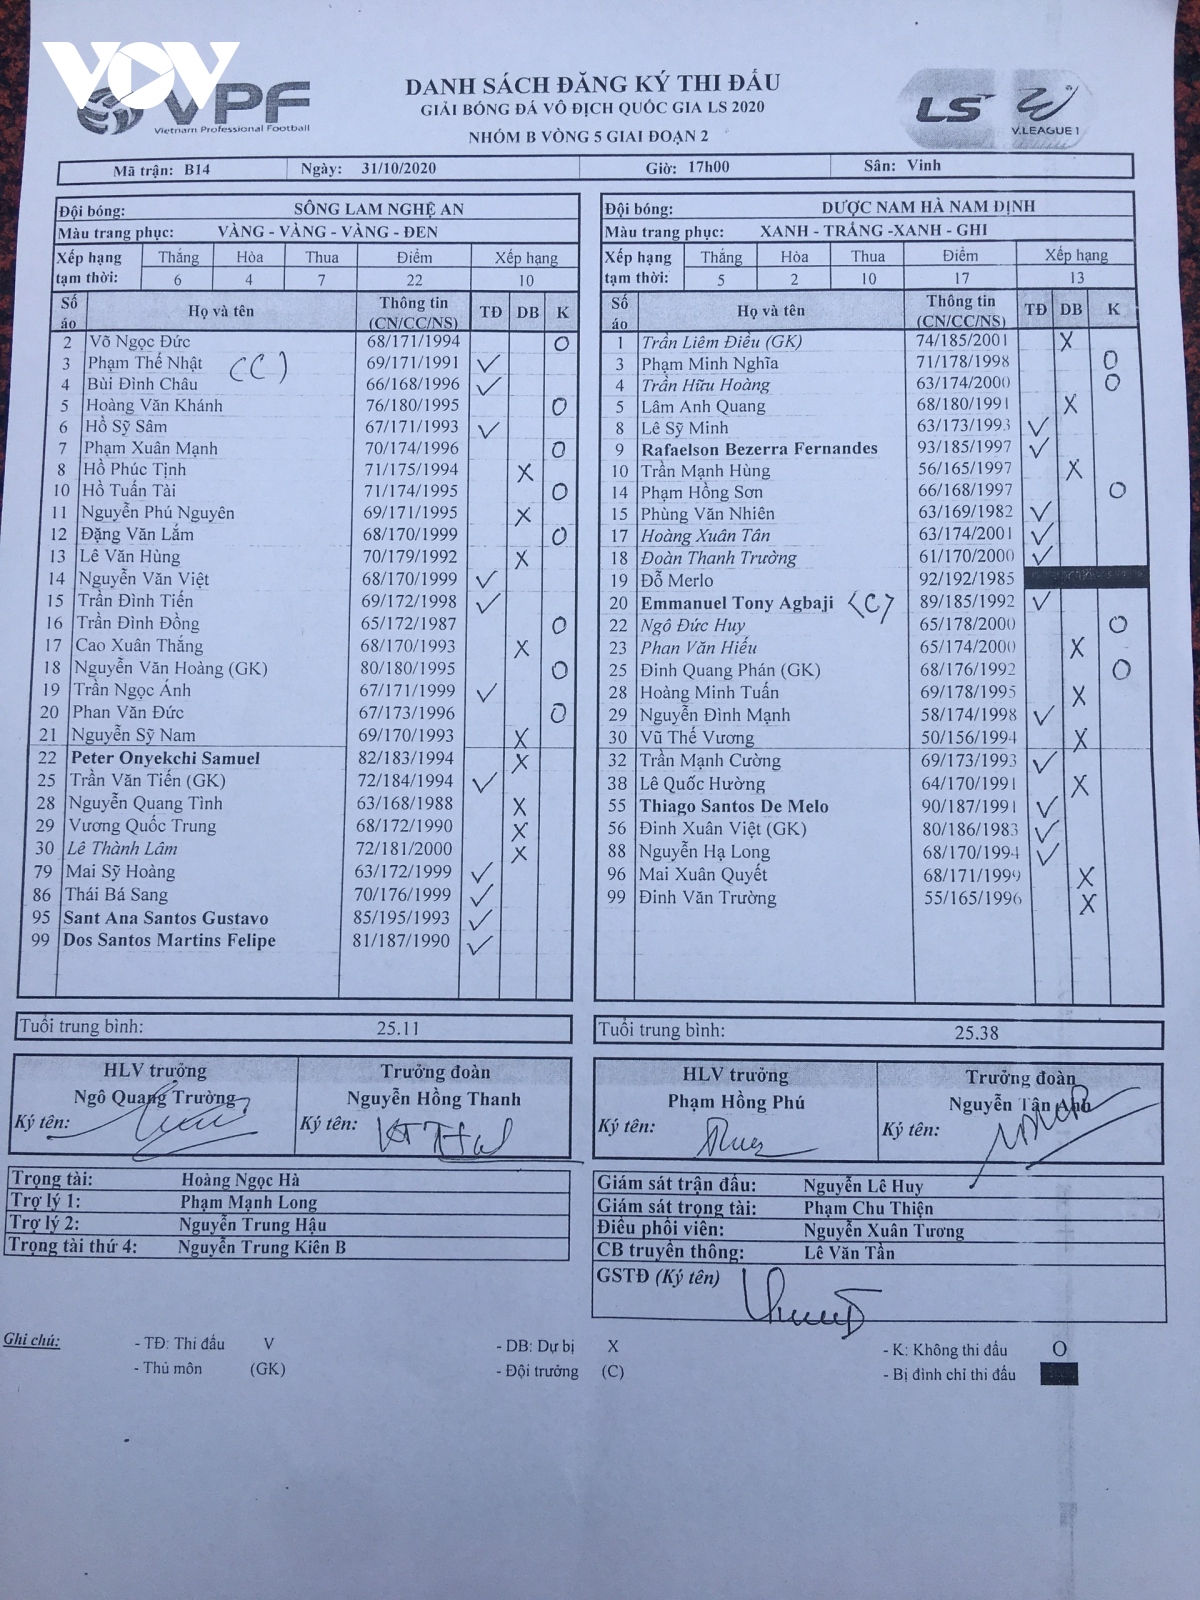 VOV
VPF
Vietnam Professional Football
DANH SÁCH ĐĂNG KÝ THI ĐẤU
GIẢI BÓNG ĐÁ VÔ ĐỊCH QUỐC GIA LS 2020
NHÓM B VÒNG 5 GIAI ĐOẠN 2
LS
V.LEAGUE 1
Mã trận: B14 Ngày: 31/10/2020 Giờ: 17h00 Sân: Vinh
Đội bóng: SÔNG LAM NGHỆ AN
Màu trang phục: VÀNG - VÀNG - VÀNG - ĐEN
Xếp hạng Thắng Hòa Thua Điểm Xếp hạng
tạm thời: 6 4 7 22 10
Số áo Họ và tên Thông tin (CN/CC/NS) TĐ DB K
2 Võ Ngọc Đức 68/171/1994 O
3 Phạm Thế Nhật (C) 69/171/1991 V
4 Bùi Đình Châu 66/168/1996 V
5 Hoàng Văn Khánh 76/180/1995 O
6 Hồ Sỹ Sâm 67/171/1993 V
7 Phạm Xuân Mạnh 70/174/1996 O
8 Hồ Phúc Tịnh 71/175/1994 X
10 Hồ Tuấn Tài 71/174/1995 O
11 Nguyễn Phú Nguyên 69/171/1995 X
12 Đặng Văn Lắm 68/170/1999 O
13 Lê Văn Hùng 70/179/1992 X
14 Nguyễn Văn Việt 68/170/1999 V
15 Trần Đình Tiến 69/172/1998 V
16 Trần Đình Đồng 65/172/1987 O
17 Cao Xuân Thắng 68/170/1993 X
18 Nguyễn Văn Hoàng (GK) 80/180/1995 O
19 Trần Ngọc Ánh 67/171/1999 V
20 Phan Văn Đức 67/173/1996 O
21 Nguyễn Sỹ Nam 69/170/1993 X
22 Peter Onyekchi Samuel 82/183/1994 X
25 Trần Văn Tiến (GK) 72/184/1994 V
28 Nguyễn Quang Tình 63/168/1988 X
29 Vương Quốc Trung 68/172/1990 X
30 Lê Thành Lâm 72/181/2000 X
79 Mai Sỹ Hoàng 63/172/1999 V
86 Thái Bá Sang 70/176/1999 V
95 Sant Ana Santos Gustavo 85/195/1993 V
99 Dos Santos Martins Felipe 81/187/1990 V
Tuổi trung bình: 25.11
HLV trưởng Trưởng đoàn
Ngô Quang Trường Nguyễn Hồng Thanh
Ký tên: Ký tên:
Trọng tài: Hoàng Ngọc Hà
Trợ lý 1: Phạm Mạnh Long
Trợ lý 2: Nguyễn Trung Hậu
Trọng tài thứ 4: Nguyễn Trung Kiên B
Đội bóng: DƯỢC NAM HÀ NAM ĐỊNH
Màu trang phục: XANH - TRẮNG -XANH - GHI
Xếp hạng Thắng Hòa Thua Điểm Xếp hạng
tạm thời: 5 2 10 17 13
Số áo Họ và tên Thông tin (CN/CC/NS) TĐ DB K
1 Trần Liêm Điều (GK) 74/185/2001 X
3 Phạm Minh Nghĩa 71/178/1998 O
4 Trần Hữu Hoàng 63/174/2000 O
5 Lâm Anh Quang 68/180/1991 X
8 Lê Sỹ Minh 63/173/1993 V
9 Rafaelson Bezerra Fernandes 93/185/1997 V
10 Trần Mạnh Hùng 56/165/1997 X
14 Phạm Hồng Sơn 66/168/1997 O
15 Phùng Văn Nhiên 63/169/1982 V
17 Hoàng Xuân Tân 63/174/2001 V
18 Đoàn Thanh Trường 61/170/2000 V
19 Đỗ Merlo 92/192/1985
20 Emmanuel Tony Agbaji (C) 89/185/1992 V
22 Ngô Đức Huy 65/178/2000 O
23 Phan Văn Hiếu 65/174/2000 X
25 Đinh Quang Phán (GK) 68/176/1992 O
28 Hoàng Minh Tuấn 69/178/1995 X
29 Nguyễn Đình Mạnh 58/174/1998 V
30 Vũ Thế Vương 50/156/1994 X
32 Trần Mạnh Cường 69/173/1993 V
38 Lê Quốc Hường 64/170/1991 X
55 Thiago Santos De Melo 90/187/1991 V
56 Đinh Xuân Việt (GK) 80/186/1983 V
88 Nguyễn Hạ Long 68/170/1994 V
96 Mai Xuân Quyết 68/171/1999 X
99 Đinh Văn Trường 55/165/1996 X
Tuổi trung bình: 25.38
HLV trưởng Trưởng đoàn
Phạm Hồng Phú Nguyễn Tân Anh
Ký tên: Ký tên:
Giám sát trận đấu: Nguyễn Lê Huy
Giám sát trọng tài: Phạm Chu Thiện
Điều phối viên: Nguyễn Xuân Tương
CB truyền thông: Lê Văn Tần
GSTĐ (Ký tên)
Ghi chú: - TĐ: Thi đấu V - DB: Dự bị X - K: Không thi đấu O
- Thủ môn (GK) - Đội trưởng (C) - Bị đình chỉ thi đấu